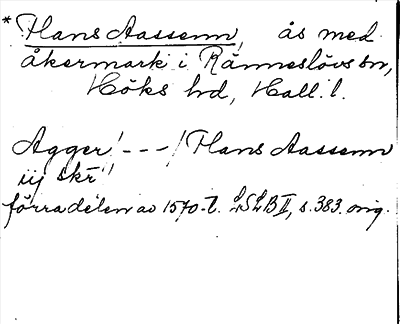 * Hans Aassenn, ås med
åkermark i Ränneslövs sn,
Höks hd, Hall. l.
Agger! - - -/ Hans Aassenn
iij skr"
förra delen av 1570-t. LSLB II, s. 383. orig.